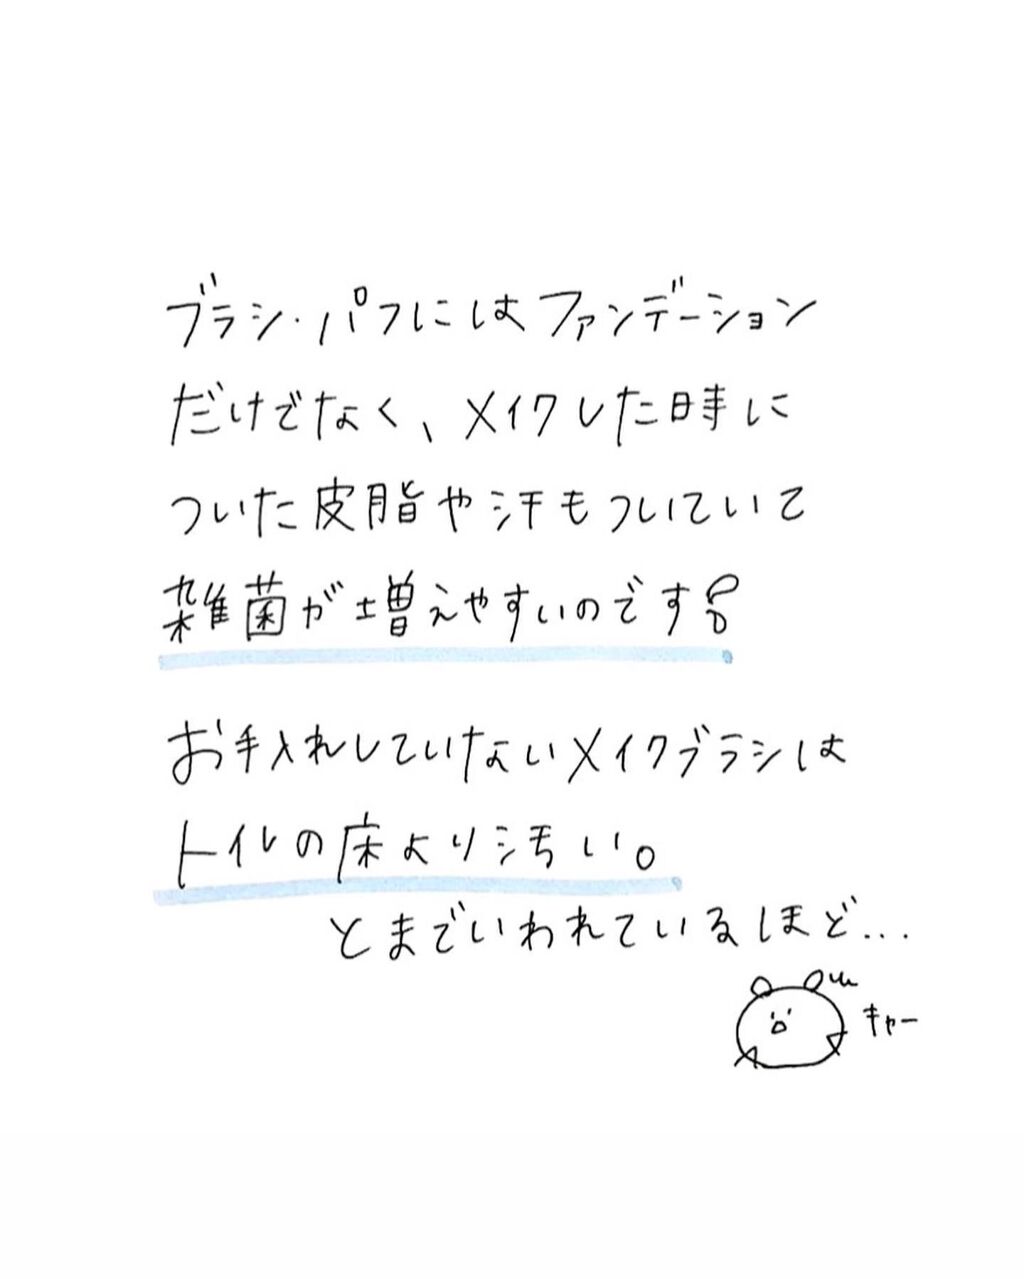 ブラシ・パフにはファンデーション
だけでなく、メイクした時に
ついた皮脂や汗もついていて
雑菌が増えやすいのです!
お手入れしていないメイクブラシは
トイレの床より汚い。
とまでいわれているほど...
キャー